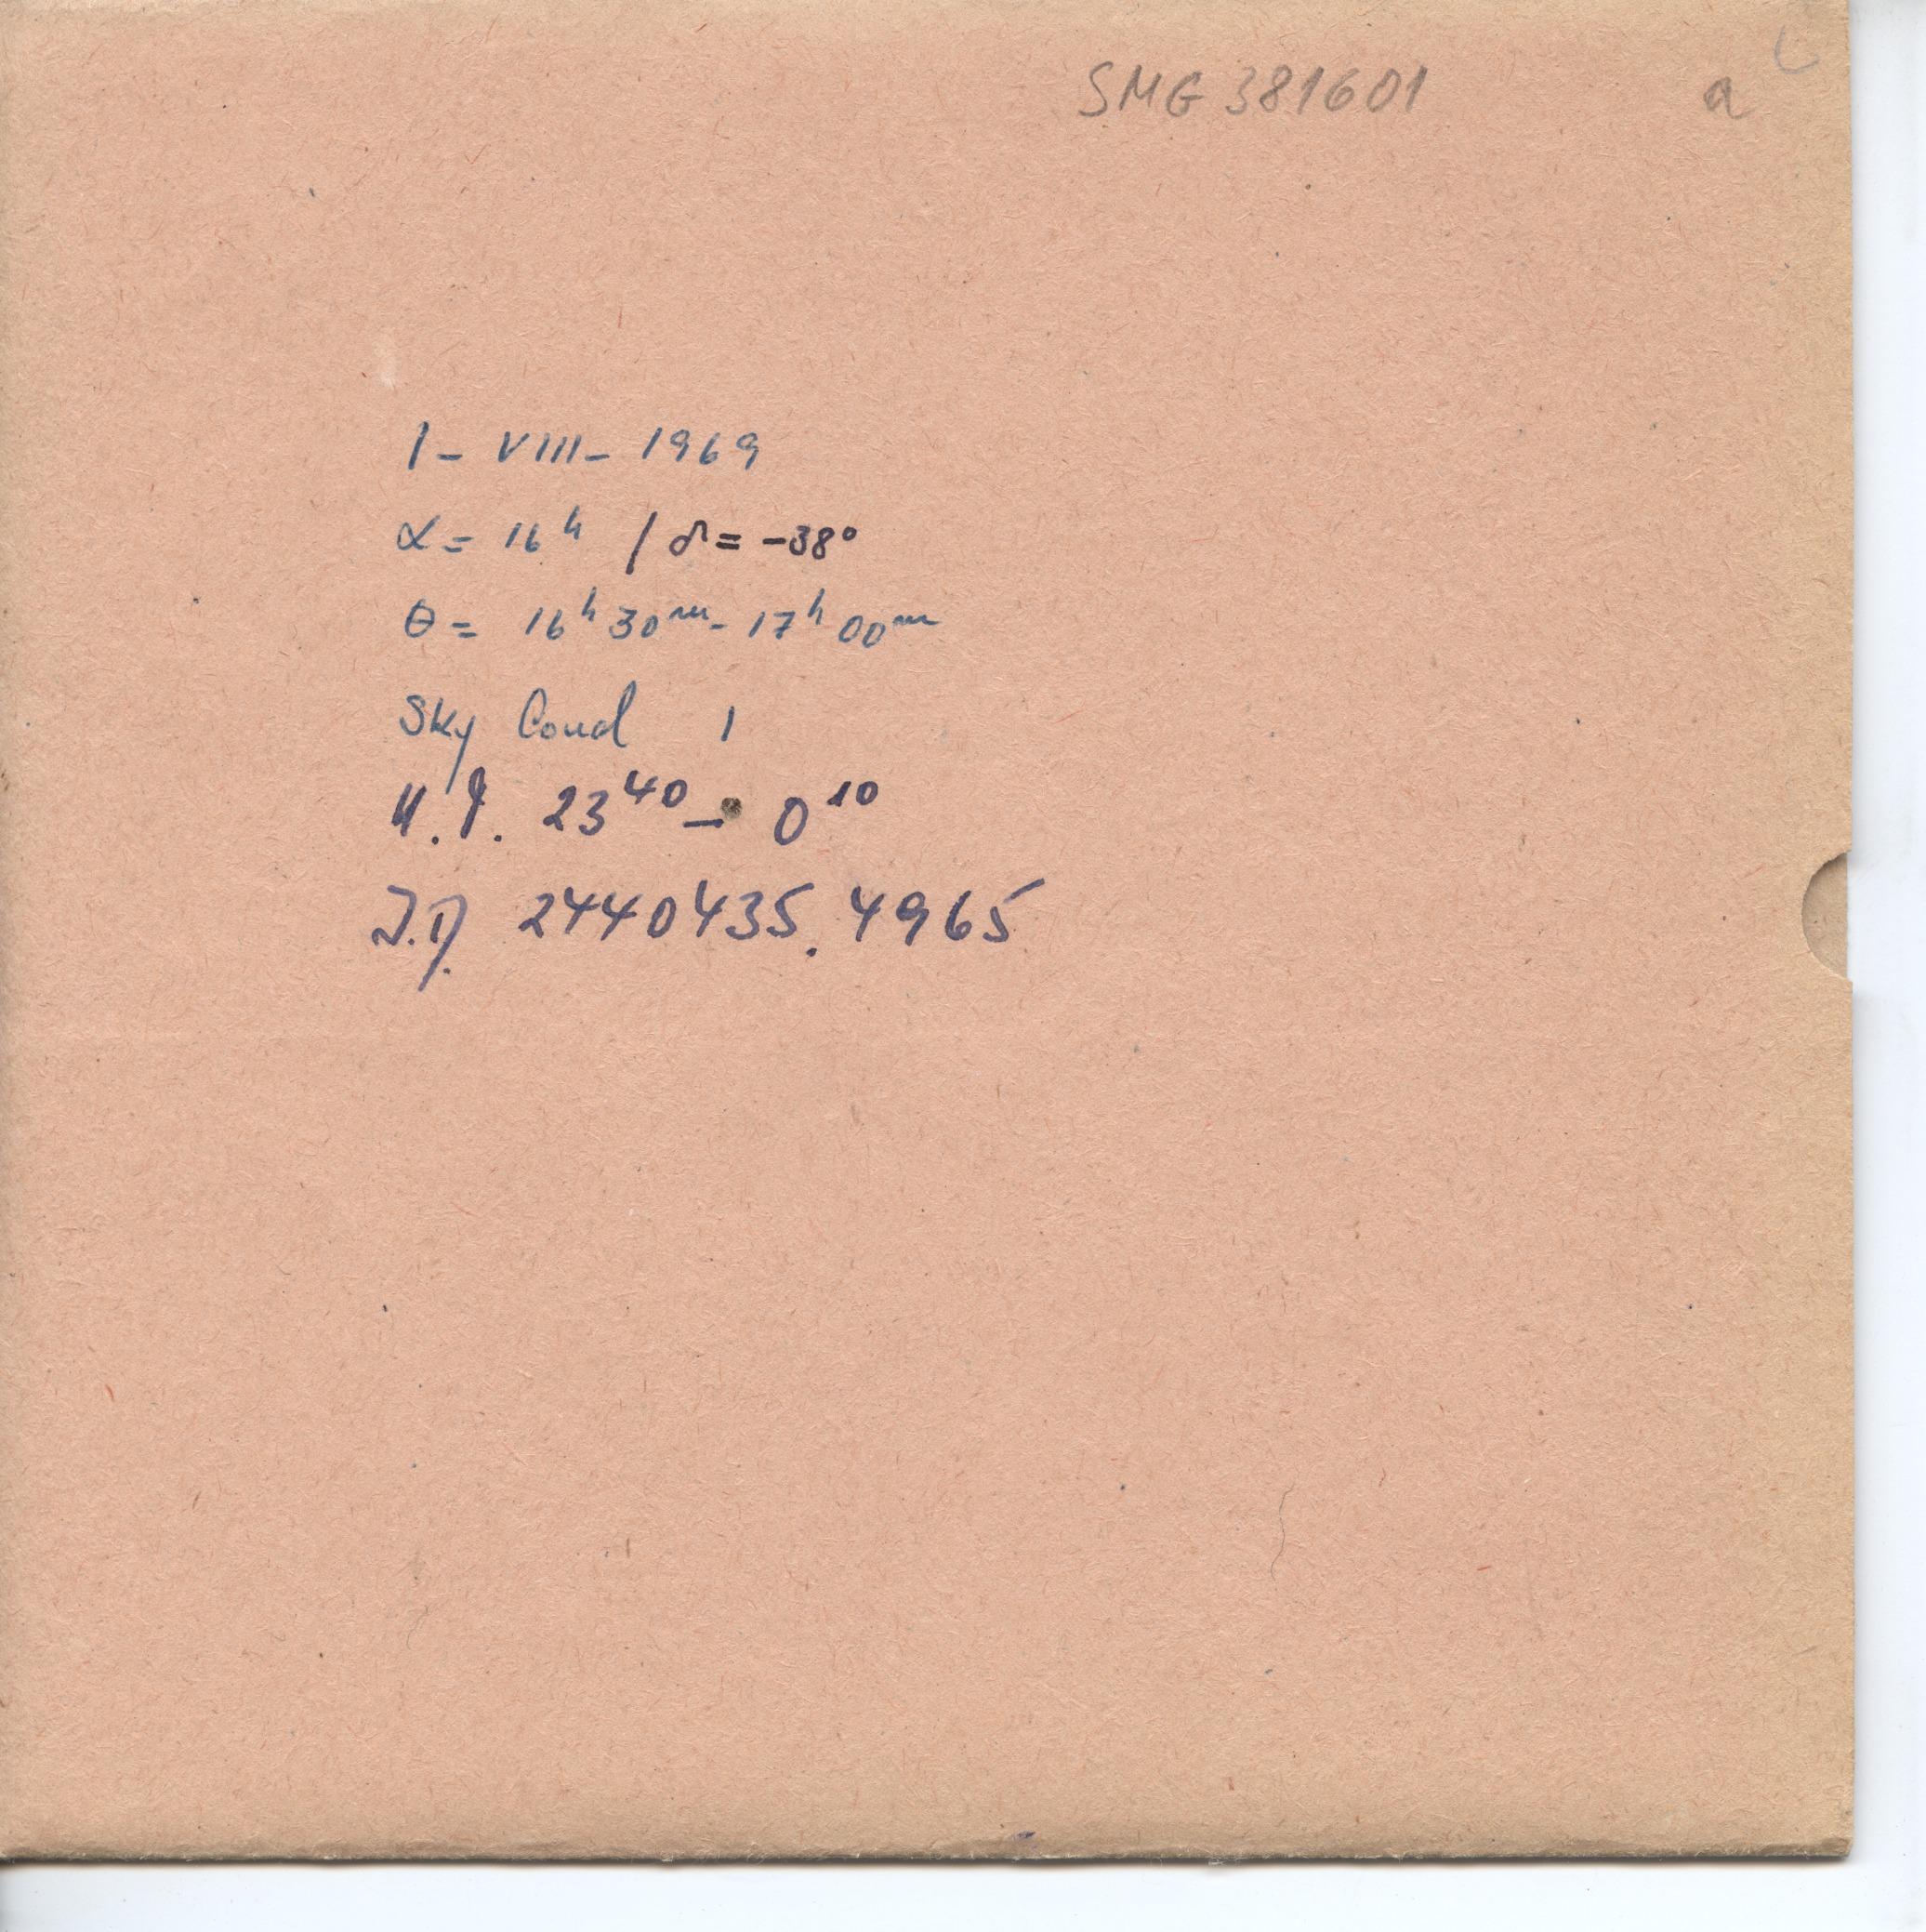 SMG 381601 a
1 - VIII - 1969
α = 16ʰ / δ = -38°
θ = 16ʰ 30ᵐ - 17ʰ 00ᵐ
Sky Cond 1
U.T. 23⁴⁰ - 0¹⁰
J.D. 2440435.4965